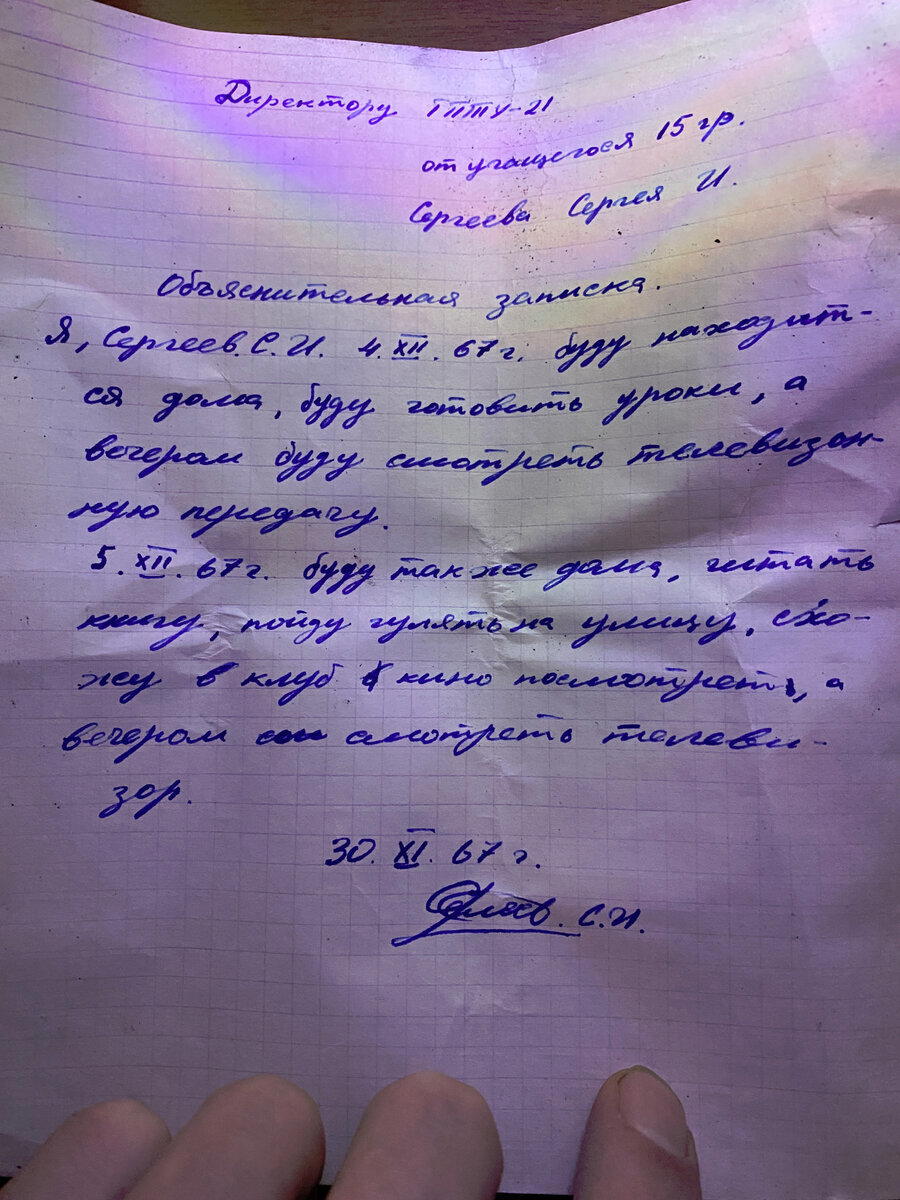 Директору ГПТУ-21
от учащегося 15 гр.
Сергеева Сергея И.
Объяснительная записка.
Я, Сергеев. С. И. 4. XII. 67 г. буду находит-
ся дома, буду готовить уроки, а
вечером буду смотреть телевизон-
ную передачу.
5. XII. 67 г. буду также дома, читать
книгу, пойду гулять на улицу, схо-
жу в клуб кино посмотреть, а
вечером смотреть телеви-
зор.
30. XI. 67 г.
С.И.